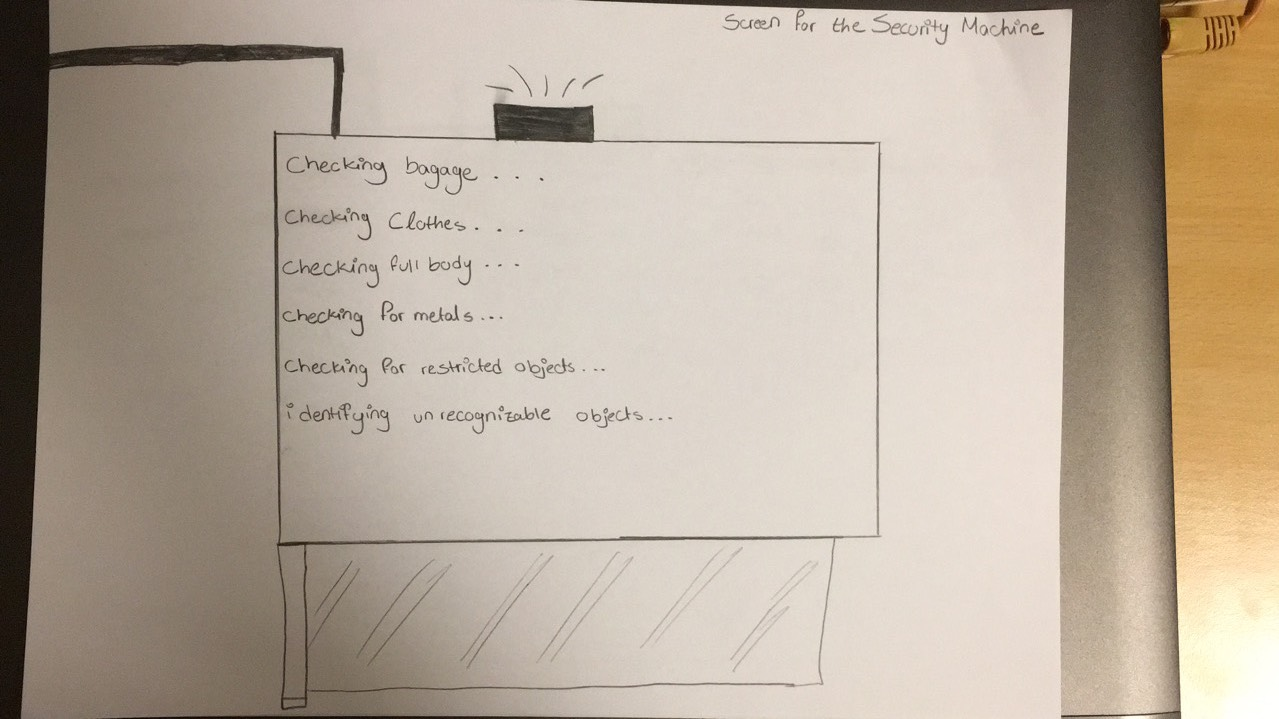 Screen for the Security Machine
Checking bagage . . .
Checking Clothes . . .
Checking full body . . .
checking for metals...
Checking for restricted objects...
identifying unrecognizable objects...